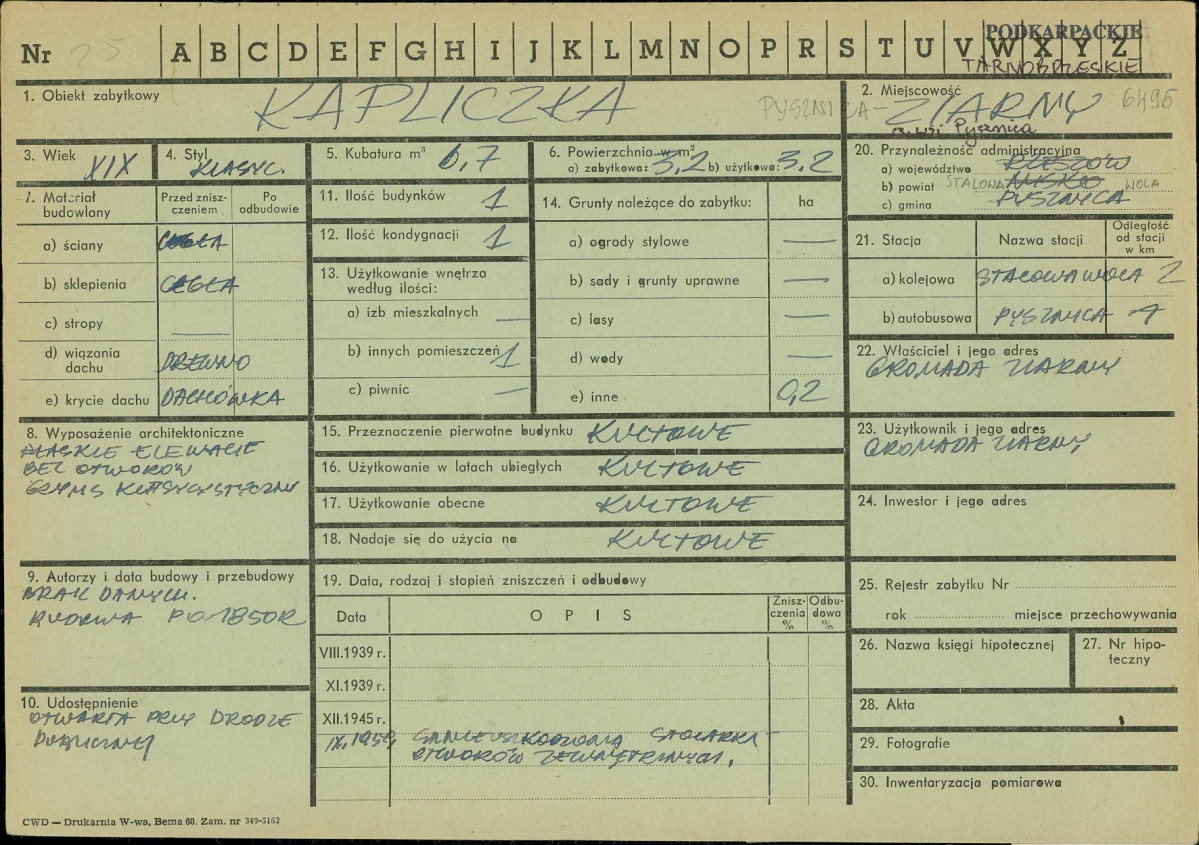 Nr 25 A B C D E F G H I J K L M N O P R S T U V W X Y Z
PODKARPACKIE
TARNOBRZESKIE
1. Obiekt zabytkowy KAPLICZKA
2. Miejscowość PYSZNICA - ZIARNY 6495
Pysznica
3. Wiek XIX
4. Styl KLASYC.
5. Kubatura m³ 6,7
6. Powierzchnia w m²
a) zabytkowa: 3,2 b) użytkowa: 3,2
7. Materiał budowlany
Przed zniszczeniem
Po odbudowie
a) ściany CEGŁA
b) sklepienia CEGŁA
c) stropy —
d) wiązania dachu DREWNO
e) krycie dachu DACHÓWKA
8. Wyposażenie architektoniczne
PŁASKIE ELEWACJE
BEZ OTWORÓW
GZYMS KLASYCYSTYCZNY
9. Autorzy i data budowy i przebudowy
BRAK DANYCH.
BUDOWA PO 1850R
10. Udostępnienie
OTWARTA PRZY DRODZE
PUBLICZNEJ
11. Ilość budynków 1
12. Ilość kondygnacji 1
13. Użytkowanie wnętrza według ilości:
a) izb mieszkalnych —
b) innych pomieszczeń 1
c) piwnic —
14. Grunty należące do zabytku: ha
a) ogrody stylowe —
b) sady i grunty uprawne —
c) lasy —
d) wody —
e) inne 0,2
15. Przeznaczenie pierwotne budynku KULTOWE
16. Użytkowanie w latach ubiegłych KULTOWE
17. Użytkowanie obecne KULTOWE
18. Nadaje się do użycia na KULTOWE
19. Data, rodzaj i stopień zniszczeń i odbudowy
Data OPIS Zniszczenia % Odbudowa %
VIII.1939 r.
XI.1939 r.
XII.1945 r.
IX.1959 STOLARKA
OTWORÓW ZEWNĘTRZNYCH.
20. Przynależność administracyjna
a) województwo RZESZÓW
b) powiat STALOWA NISKO WOLA
c) gmina PYSZNICA
21. Stacja Nazwa stacji Odległość od stacji w km
a) kolejowa STALOWA WOLA 2
b) autobusowa PYSZNICA 1
22. Właściciel i jego adres
GROMADA ZIARNY
23. Użytkownik i jego adres
GROMADA ZIARNY
24. Inwestor i jego adres
25. Rejestr zabytku Nr
rok miejsce przechowywania
26. Nazwa księgi hipotecznej
27. Nr hipoteczny
28. Akta
29. Fotografie
30. Inwentaryzacja pomiarowa
CWD — Drukarnia W-wa, Bema 60. Zam. nr 349-5162